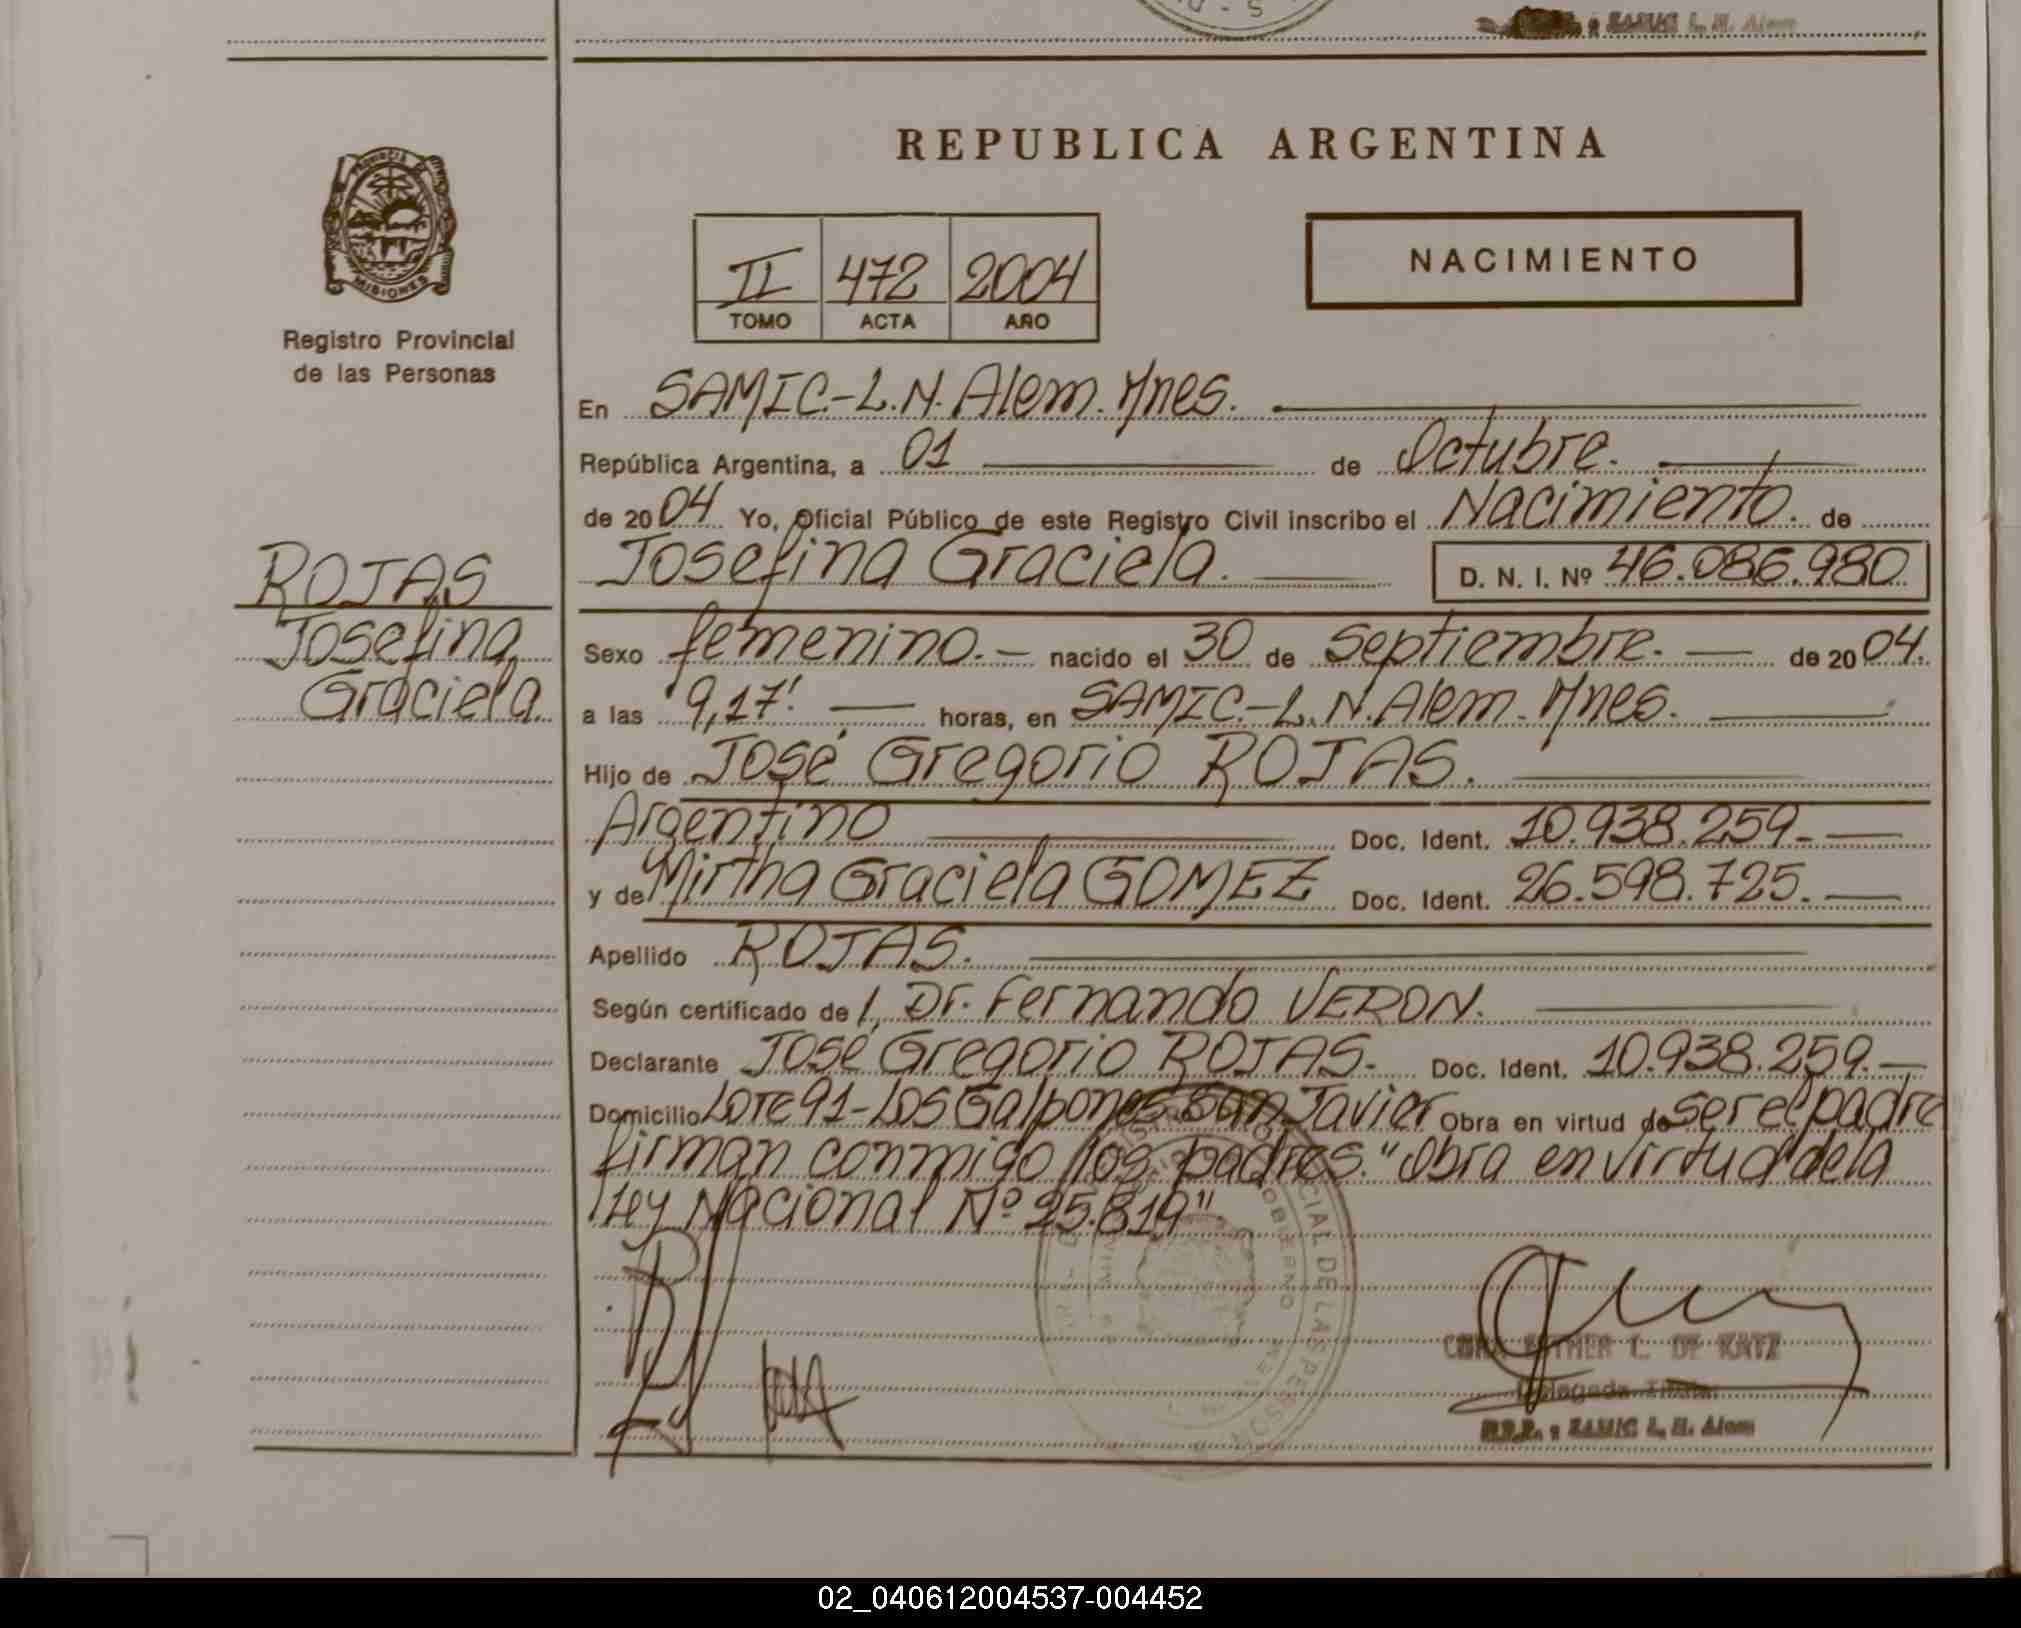 SAMIC L. N. Alem
PROVINCIA DE
MISIONES
REPUBLICA ARGENTINA
II 472 2004
TOMO ACTA AÑO
NACIMIENTO
Registro Provincial
de las Personas
En SAMIC.-L.N. Alem. Mnes.
República Argentina, a 01 de Octubre.
de 2004 Yo, Oficial Público de este Registro Civil inscribo el Nacimiento. de
Josefina Graciela. D. N. I. Nº 46.086.980
ROJAS
Josefina
Graciela
Sexo femenino.- nacido el 30 de Septiembre. de 2004.
a las 9,17'. horas, en SAMIC.-L.N. Alem. Mnes.
Hijo de José Gregorio ROJAS.
Argentino Doc. Ident. 10.938.259.-
y de Mirtha Graciela GOMEZ Doc. Ident. 26.598.725.
Apellido ROJAS.
Según certificado de Dr. Fernando VERON.
Declarante José Gregorio ROJAS.- Doc. Ident. 10.938.259.-
Domicilio Lote 91-Los Galpones San Javier Obra en virtud de ser el padre
firman conmigo los padres. "Obra en virtud de la
Ley Nacional Nº 25.819"
CIAL DE LAS PERSO
GOBIERNO
ESTHER L. DE KATZ
Delegada Titular
R.P.P. SAMIC L. N. Alem
02_040612004537-004452